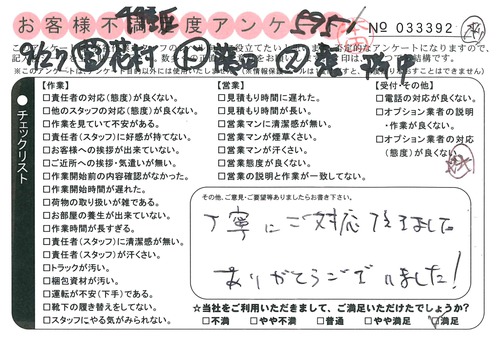 お客様不満足度アンケ
No 033392
9/27
チェックリスト
【作業】
□責任者の対応(態度)が良くない。
□他のスタッフの対応(態度)が良くない。
□作業を見ていて不安がある。
□責任者(スタッフ)に好感が持てない。
□お客様への挨拶が出来ていない。
□ご近所への挨拶・気遣いが無い。
□作業開始前の内容確認がなかった。
□作業開始時間が遅れた。
□荷物の取り扱いが雑である。
□お部屋の養生が出来ていない。
□作業時間が長すぎる。
□責任者(スタッフ)に清潔感が無い。
□責任者(スタッフ)が汗くさい。
□トラックが汚い。
□梱包資材が汚い。
□運転が不安(下手)である。
□靴下の履き替えをしてくれない。
□スタッフにやる気がみられない。
【営業】
□見積もり時間に遅れた。
□見積もり時間が長い。
□営業マンに清潔感が無い。
□営業マンが煙草くさい。
□営業マンが汗くさい。
□営業態度が良くない。
□営業の説明と作業が一致してない。
【受付・その他】
□電話の対応が良くない。
□オプション業者の説明
・作業が良くない。
□オプション業者の対応
(態度)が良くない。
その他、ご意見・ご要望等ありましたらお書き下さい。
丁寧にご対応頂きました。
ありがとうございました!
☆当社をご利用いただきまして、ご満足いただけたでしょうか?
□不満 □やや不満 □普通 □やや満足 ☑満足